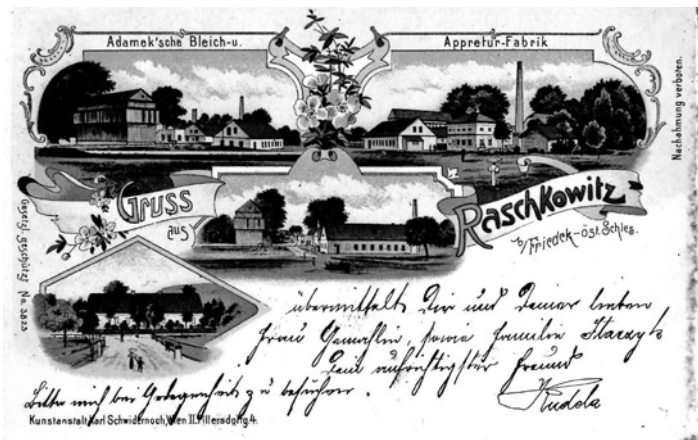 Adamek'sche Bleich-u. Appretur-Fabrik
Nachahmung verboten.
Gruss
aus
Raschkowitz
b/Friedek-öst. Schles.
Gesetzl. geschützt No. 3823
übermittelt Dir und Deiner lieben
Frau Gemahlin, sowie Familie
Dein aufrichtigster Freund
Kudela
Bitte mich bei Gelegenheit zu besuchen.
Kunstanstalt Karl Schwidernoch, Wien II. Pillersdorfg. 4.